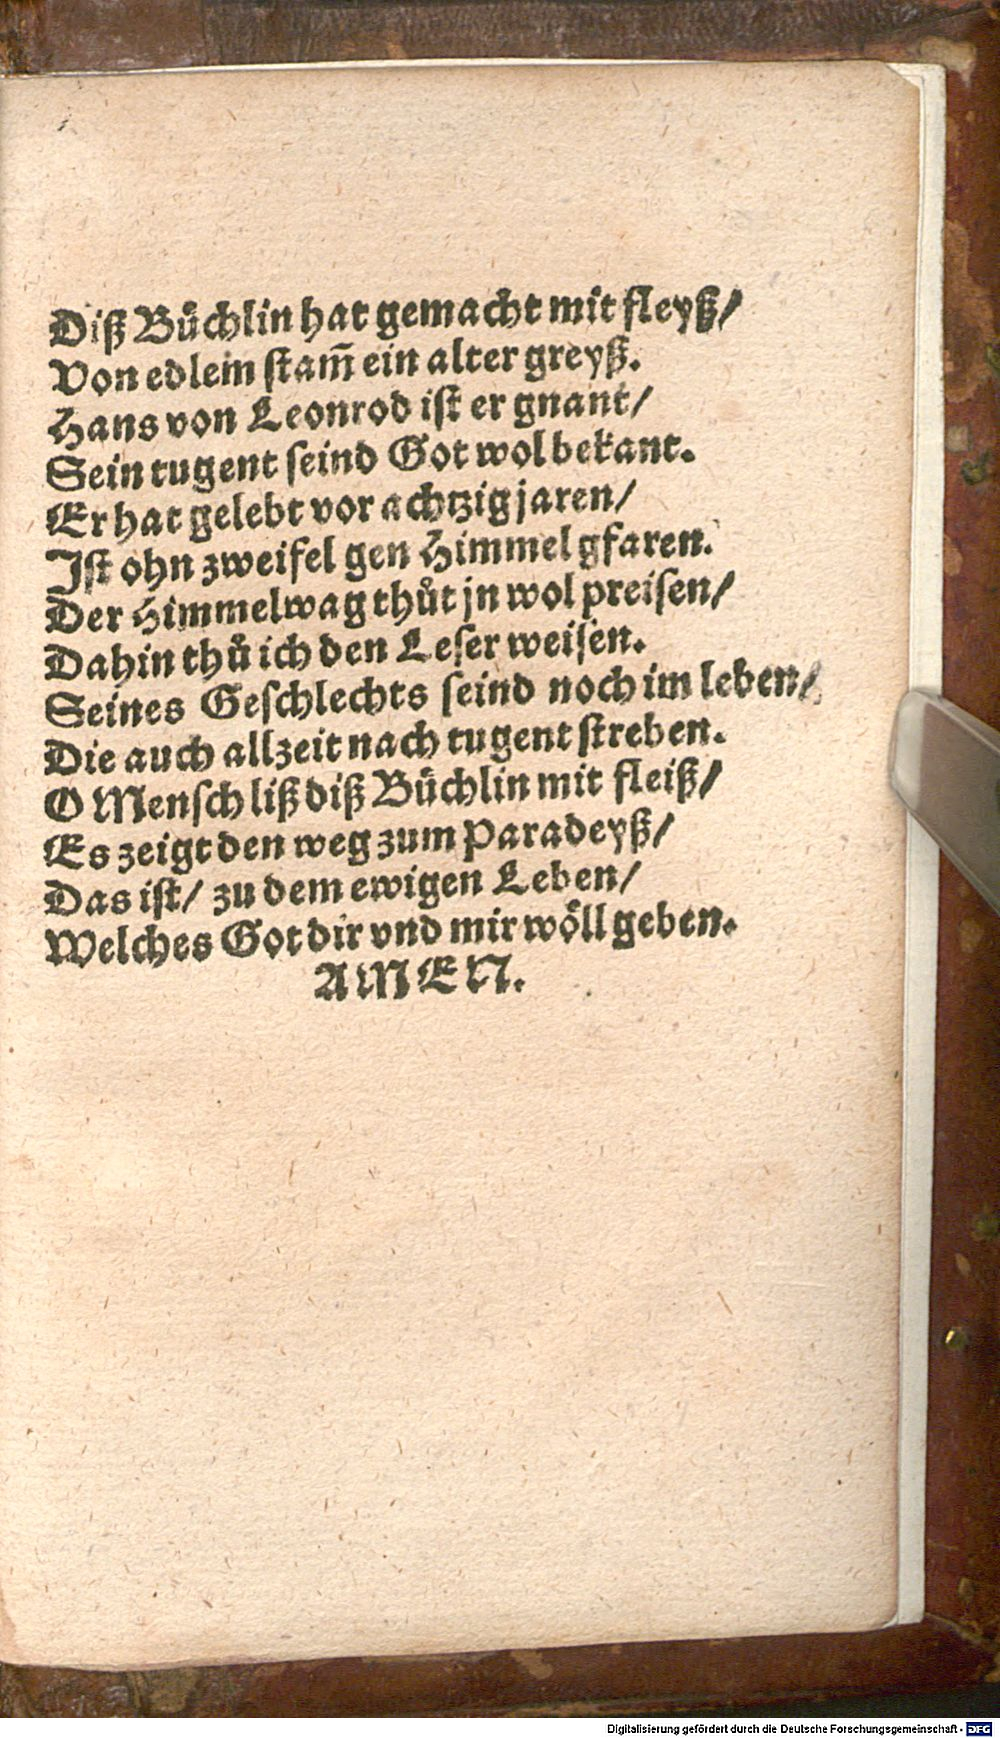 Diß Bůchlin hat gemacht mit fleyß/
Von edlem stam̅ ein alter greyß.
Hans von Leonrod ist er gnant/
Sein tugent seind Got wol bekant.
Er hat gelebt vor achtzig jaren/
Ist ohn zweifel gen Himmel gfaren.
Der Himmelwag thůt jn wol preisen/
Dahin thů ich den Leser weisen.
Seines Geschlechts seind noch im leben/
Die auch allzeit nach tugent streben.
O Mensch liß diß Bůchlin mit fleiß/
Es zeigt den weg zum Paradeyß/
Das ist/ zu dem ewigen Leben/
Welches Got dir vnd mir wöll geben.
AMEN.
Digitalisierung gefördert durch die Deutsche Forschungsgemeinschaft - DFG